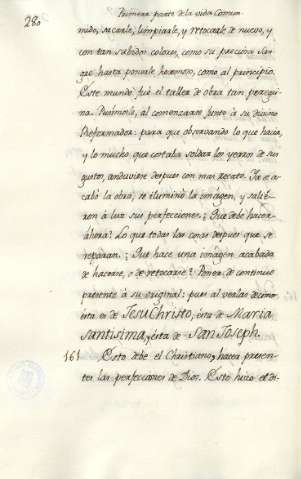 280
Primera parte de la vida Comun
mido, sacarle, limpiarle, y retocarle de nuevo, y
con tan subidos colores, como su preciosa san-
gre hasta ponerle hermoso, como al principio.
Este mundo fue el taller de obra tan peregri-
na. Pusímosle, al comenzarse junto à su divino
Reformador: para que observando lo que hacia,
y lo mucho que costaba soldar los yerros de sus
gustos, anduviese despues con mas recato. Ya se a-
cabò la obra, se iluminò la imágen, y salié-
ron à luz sus perfecciones; ¿Que debe hacer
ahora? Lo que todas las cosas despues que se
reparan. ¿Que hace una imágen acabada
de hacerse, o de retocarse? Poner de continuo
presente à su original: pues al verlas decimos
esta es de Jesu Christo, esta de Maria
Santisima, y ésta de San Joseph.
161 Esto debe el Christiano, hacer presen-
tes las perfecciones de Dios. Esto hizo el di-